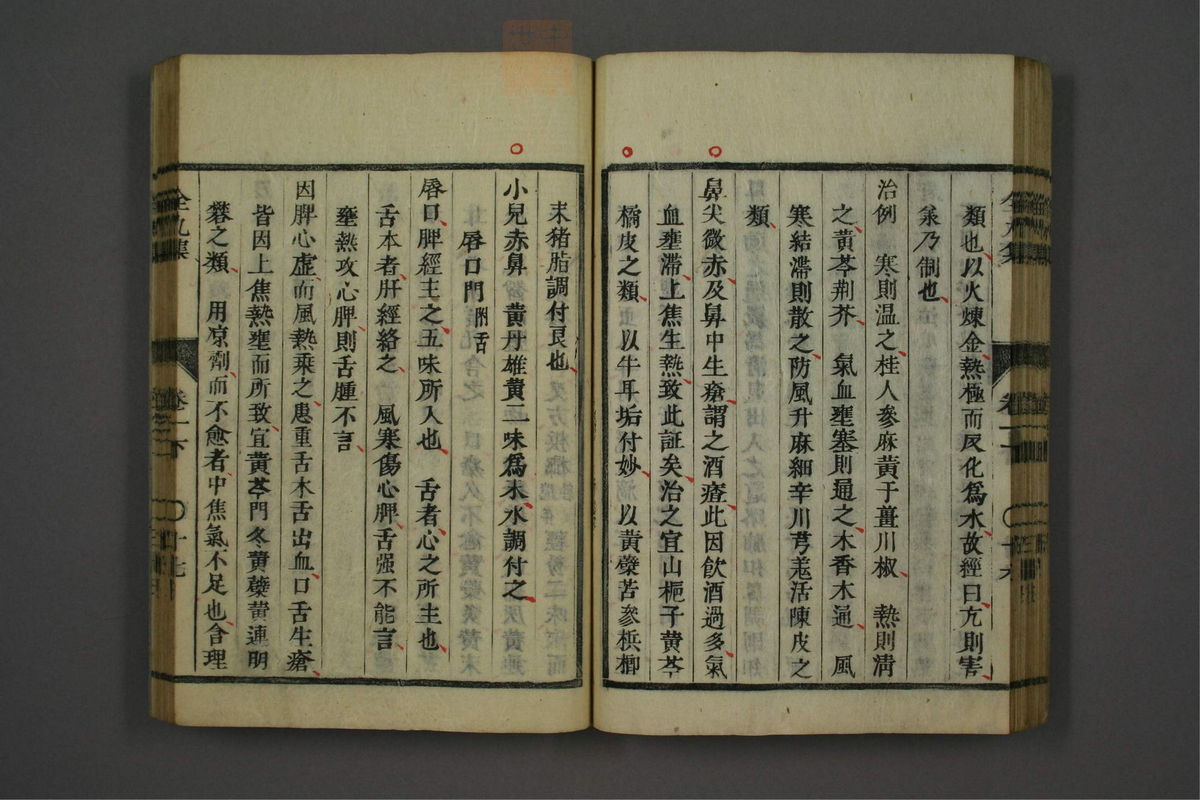 類也以火煉金熱極而反化為水故經曰亢則害
乃制也
治例　寒則温之桂人參麻黄干薑川椒　熱則清
之黄芩荆芥　氣血壅塞則通之木香木通　風
寒結滯則散之防風升麻細辛川芎羗活陳皮之
類
鼻尖微赤及鼻中生瘡謂之酒㾴此因飲酒過多氣
血壅滯上焦生熱致此証矣治之宜山梔子黄芩
橘皮之類　以牛耳垢付妙　以黄蘗苦參梹榔
末猪脂調付良也
小兒赤鼻　黄丹雄黄二味爲末水調付之
唇口門　附舌
唇口脾經主之五味所入也　舌者心之所主也
舌本者肝經絡之　風寒傷心脾舌强不能言
壅熱攻心脾則舌腫不言
因脾心虚而風熱乘之患重舌木舌出血口舌生瘡
皆因上焦熱壅而所致宜黄芩門冬黄蘗黄連明
礬之類　用凉劑而不愈者中焦氣不足也含理
全九集　卷一下　十七